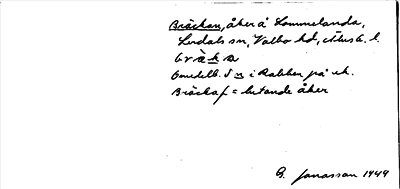 Bräckan, åker å Sommelanda,
Lerdals sn, Valbo hd, Älvsb. l.
Omedelb. S i Rabben på ek.
Bräcka = lutande åker
G. Jonasson 1949